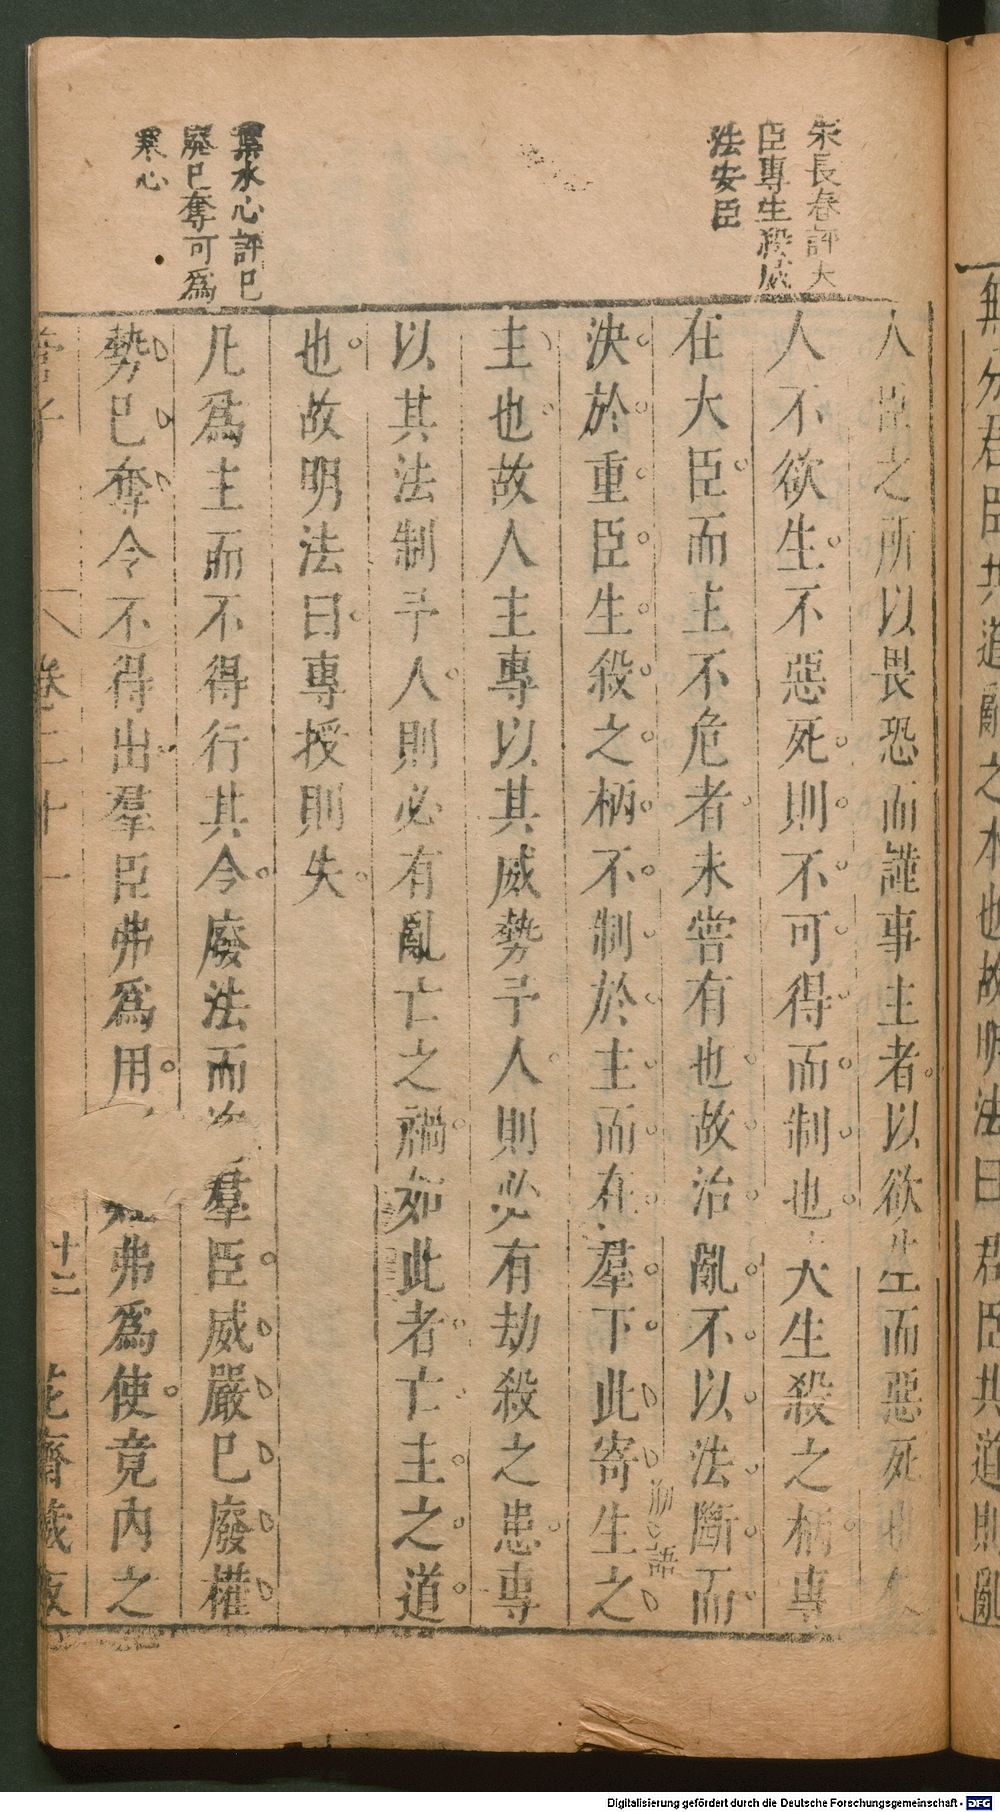 無分君臣共道亂之本也故明法曰群臣共道則亂
朱長春評大
臣專生殺威
法安臣
人臣之所以畏恐而謹事主者以欲生而惡死也使
人不欲生不惡死則不可得而制也夫生殺之柄專
在大臣而主不危者未嘗有也故治亂不以法斷而
決於重臣生殺之柄不制於主而在羣下此寄生之
語
主也故人主專以其威勢予人則必有劫殺之患專
以其法制予人則必有亂亡之禍如此者亡主之道
也故明法曰專授則失
葉水心評已
廢已奪可爲
寒心
凡爲主而不得行其令廢法而 羣臣威嚴已廢權
勢已奪令不得出羣臣弗爲用 弗爲使竟內之
管子
卷二十一
十二
花齋藏板
Digitalisierung gefördert durch die Deutsche Forschungsgemeinschaft - DFG